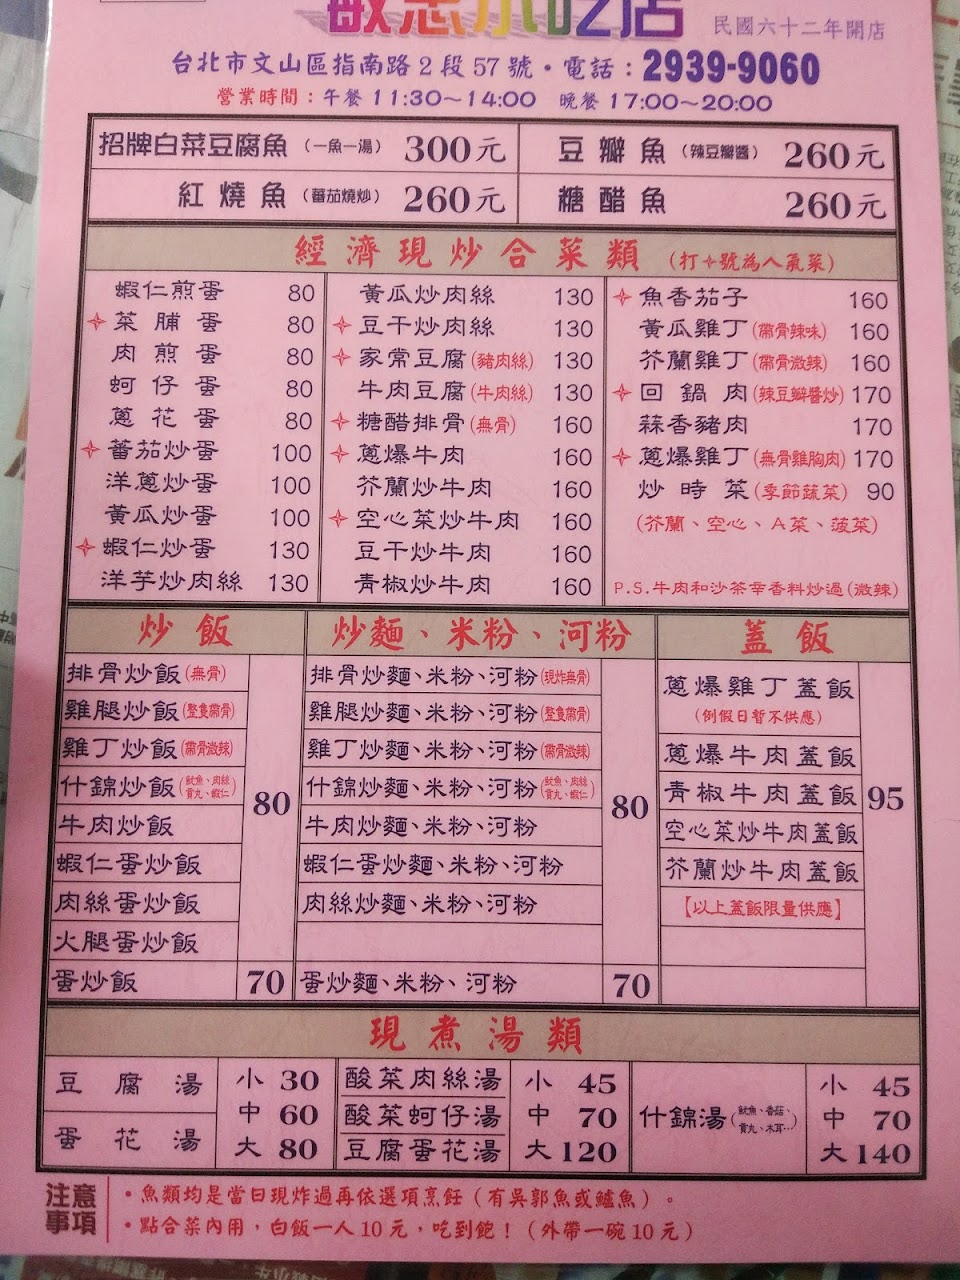 小吃店 民國六十二年開店
台北市文山區指南路2段57號・電話：2939-9060
營業時間：午餐 11:30～14:00 晚餐 17:00～20:00
招牌白菜豆腐魚（一魚一湯） 300元 豆瓣魚（辣豆瓣醬） 260元
紅燒魚（蕃茄燒炒） 260元 糖醋魚 260元
經濟現炒合菜類（打✧號為人氣菜）
蝦仁煎蛋 80
✧菜脯蛋 80
肉煎蛋 80
蚵仔蛋 80
蔥花蛋 80
✧蕃茄炒蛋 100
洋蔥炒蛋 100
黃瓜炒蛋 100
✧蝦仁炒蛋 130
洋芋炒肉絲 130
黃瓜炒肉絲 130
✧豆干炒肉絲 130
✧家常豆腐(豬肉絲) 130
牛肉豆腐(牛肉絲) 130
✧糖醋排骨(無骨) 160
✧蔥爆牛肉 160
芥蘭炒牛肉 160
✧空心菜炒牛肉 160
豆干炒牛肉 160
青椒炒牛肉 160
✧魚香茄子 160
黃瓜雞丁(帶骨辣味) 160
芥蘭雞丁(帶骨微辣) 160
✧回鍋肉(辣豆瓣醬炒) 170
蒜香豬肉 170
✧蔥爆雞丁(無骨雞胸肉) 170
炒時菜(季節蔬菜) 90
(芥蘭、空心、A菜、菠菜)
P.S.牛肉和沙茶辛香料炒過(微辣)
炒飯
排骨炒飯(無骨)
雞腿炒飯(整隻帶骨)
雞丁炒飯(帶骨微辣)
什錦炒飯(魷魚、肉絲、貢丸、蝦仁)
牛肉炒飯
蝦仁蛋炒飯
肉絲蛋炒飯
火腿蛋炒飯
80
蛋炒飯 70
炒麵、米粉、河粉
排骨炒麵、米粉、河粉(現炸無骨)
雞腿炒麵、米粉、河粉(整隻帶骨)
雞丁炒麵、米粉、河粉(帶骨微辣)
什錦炒麵、米粉、河粉(魷魚、肉絲、貢丸、蝦仁)
牛肉炒麵、米粉、河粉
蝦仁蛋炒麵、米粉、河粉
肉絲炒麵、米粉、河粉
80
蛋炒麵、米粉、河粉 70
蓋飯
蔥爆雞丁蓋飯
(例假日暫不供應)
蔥爆牛肉蓋飯
青椒牛肉蓋飯
空心菜炒牛肉蓋飯
芥蘭炒牛肉蓋飯
95
【以上蓋飯限量供應】
現煮湯類
豆腐湯
蛋花湯
小 30
中 60
大 80
酸菜肉絲湯
酸菜蚵仔湯
豆腐蛋花湯
小 45
中 70
大 120
什錦湯(魷魚、香菇、貢丸、木耳…)
小 45
中 70
大 140
注意事項
・魚類均是當日現炸過再依選項烹飪（有吳郭魚或鱸魚）。
・點合菜內用，白飯一人10元，吃到飽！（外帶一碗10元）